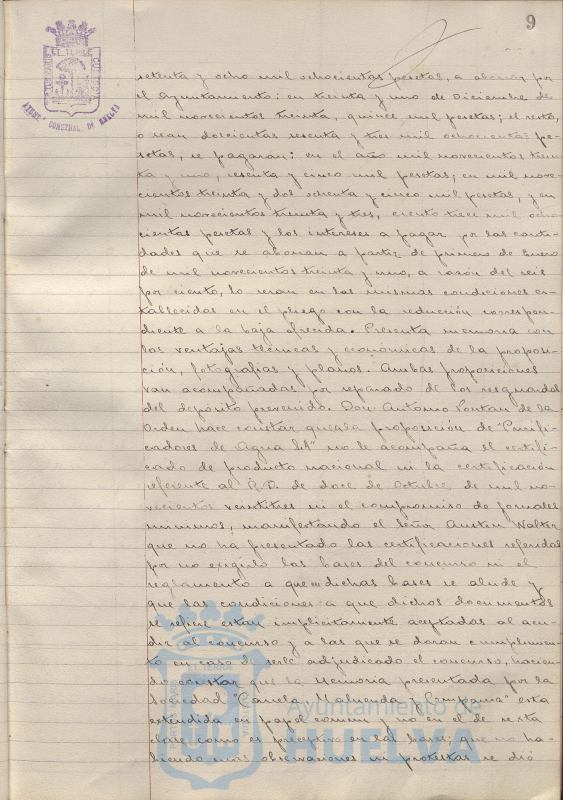 9
EL TERRE
AYUNT. CONSTNAL. DE HUELVA
setenta y ocho mil ochocientas pesetas, a abonar por
el Ayuntamiento: en treinta y uno de Diciembre de
mil novecientos treinta, quince mil pesetas; el resto,
o sean doscientas sesenta y tres mil ochocientas pe-
setas, se pagaran: en el año mil novecientos trein-
ta y uno, sesenta y cinco mil pesetas; en mil nove-
cientos treinta y dos ochenta y cinco mil pesetas, y en
mil novecientos treinta y tres, ciento trece mil ocho
cientas pesetas y los intereses a pagar por las canti-
dades que se abonan a partir de primero de Enero
de mil novecientos treinta y uno, a razón del seis
por ciento, lo seran en las mismas condiciones es-
tablecidas en el pliego con la reducción correspon-
diente a la baja ofrecida. Presenta memoria con
las ventajas técnicas y económicas de la proposi-
ción, fotografias y planos. Ambas proposiciones
van acompañadas por separado de los resguardos
del depósito prevenido. Don Antonio Pontan de la
Orden hace constar que a la proposición de "Purifi-
cadores de Agua S.A" no le acompaña el certifi-
cado de producto nacional ni la certificación
referente al R.D. de doce de Octubre de mil no-
vecientos veintitres ni el compromiso de jornales
minimos, manifestando el señor Austin Walter
que no ha presentado las certificaciones referidas
por no exigirlo las bases del concurso ni el
reglamento a que en dichas bases se alude y
que las condiciones a que dichos documentos
se refiere estan implicitamente aceptadas al acu-
dir al concurso y a las que se daran cumplimien-
to en caso de serle adjudicado el concurso, hacien-
do constar que la Memoria presentada por la
Sociedad "Canela Maluenda y Compania" esta
extendida en papel comun y no en el de sexta
clase como es preceptivo en las bases; que no ha-
biendo mas observaciones ni protestas se dió
EL TERRA
Ayuntamiento de
HUELVA